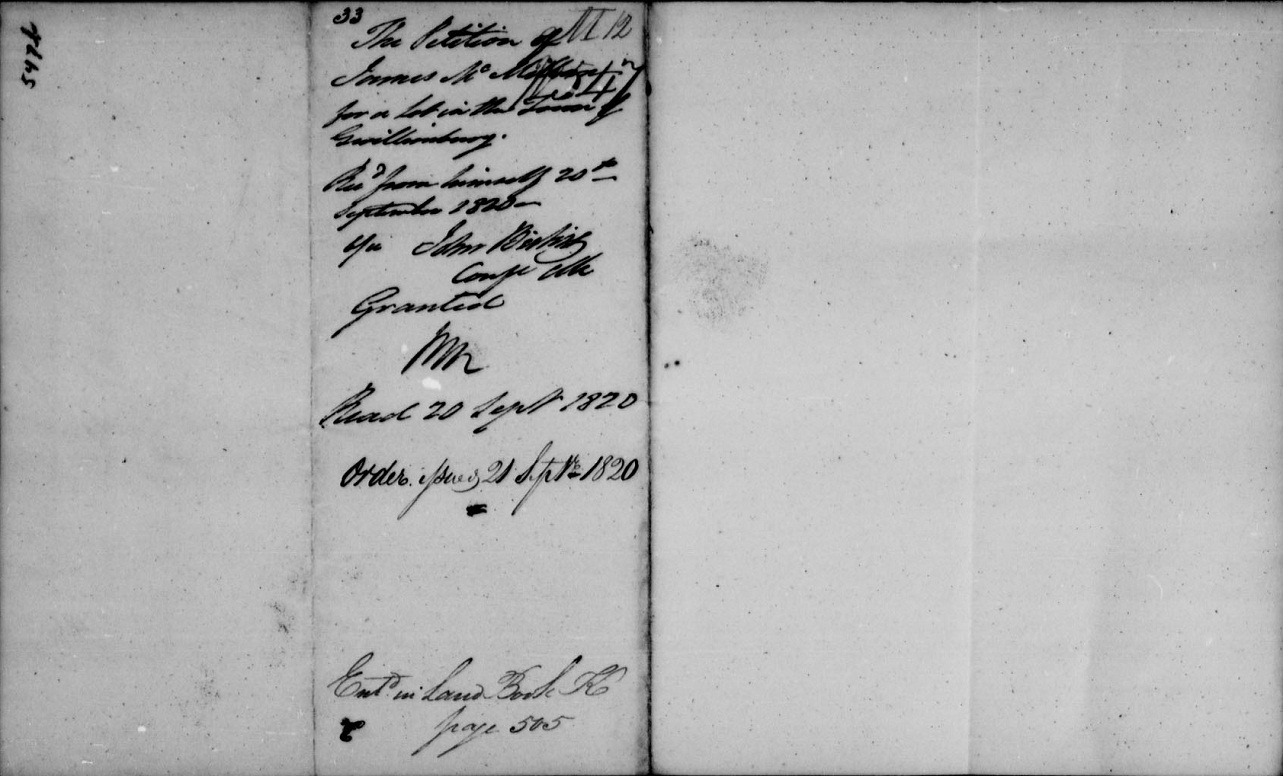 5474
33
The Petition of M 12
James Mc Millan
for a Lot in the Town of
Gwillimbury.
Recd from himself 20th
September 1820
John
Granted
Read 20 Sept 1820
Order issued 21 Septr 1820
Entd in Land Book K
page 505